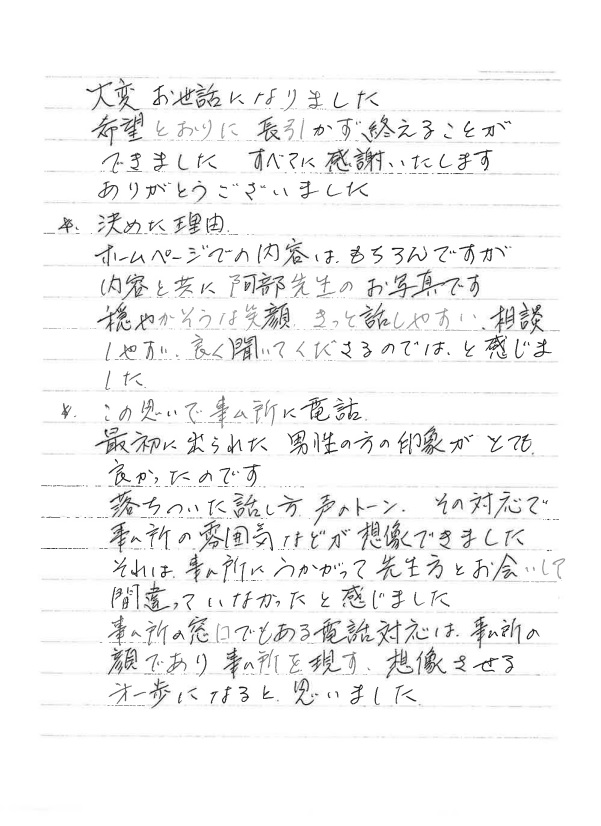 大変 お世話になりました
希望 とおりに 長引かず、終えることが
できました すべてに 感謝いたします
ありがとうございました
☆. 決めた理由.
ホームページでの内容は、もちろんですが
内容と共に 阿部先生の お写真です
穏やかそうな笑顔、きっと話しやすい、相談
しやすい、良く聞いてくださるのでは、と感じま
した.
☆. この思いで事ム所に電話.
最初に出られた 男性の方の印象が とても、
良かったのです
落ちついた話し方 声のトーン、 その対応で
事ム所の雰囲気などが想像できました
それは、事ム所に うかがって 先生方とお会いして
間違っていなかったと感じました
事ム所の窓口でもある電話対応は、事ム所の
顔であり 事ム所を現す、想像させる
オ一歩になると、思いました.